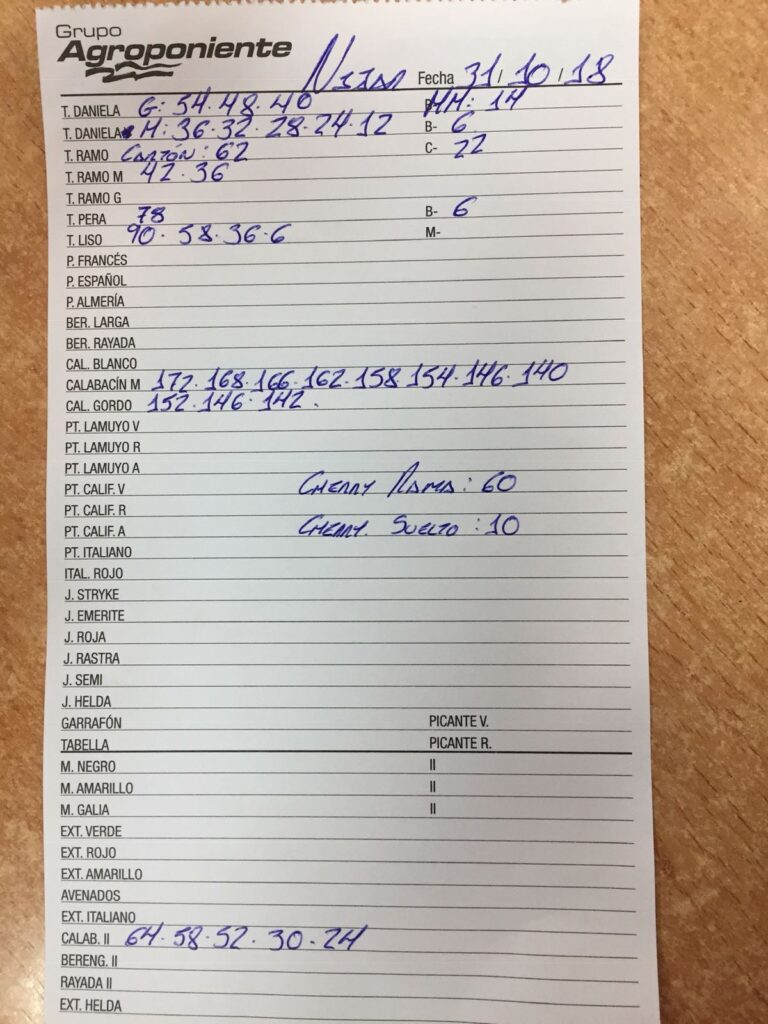 Grupo
Agroponiente
NIJAR Fecha 31/10/18
T. DANIELA G: 54·48·40 MM: 14
T. DANIELA M: 36·32·28·24·12 B- 6
T. RAMO CARTÓN: 62 C- 22
T. RAMO M 42·36
T. RAMO G
T. PERA 78 B- 6
T. LISO 90·58·36·6 M-
P. FRANCÉS
P. ESPAÑOL
P. ALMERÍA
BER. LARGA
BER. RAYADA
CAL. BLANCO
CALABACÍN M 172·168·166·162·158·154·146·140
CAL. GORDO 152·146·142.
PT. LAMUYO V
PT. LAMUYO R
PT. LAMUYO A
PT. CALIF. V CHERRY RAMA: 60
PT. CALIF. R
PT. CALIF. A CHERRY. SUELTO: 10
PT. ITALIANO
ITAL. ROJO
J. STRYKE
J. EMERITE
J. ROJA
J. RASTRA
J. SEMI
J. HELDA
GARRAFÓN PICANTE V.
TABELLA PICANTE R.
M. NEGRO II
M. AMARILLO II
M. GALIA II
EXT. VERDE
EXT. ROJO
EXT. AMARILLO
AVENADOS
EXT. ITALIANO
CALAB. II 64·58·52·30·24
BERENG. II
RAYADA II
EXT. HELDA